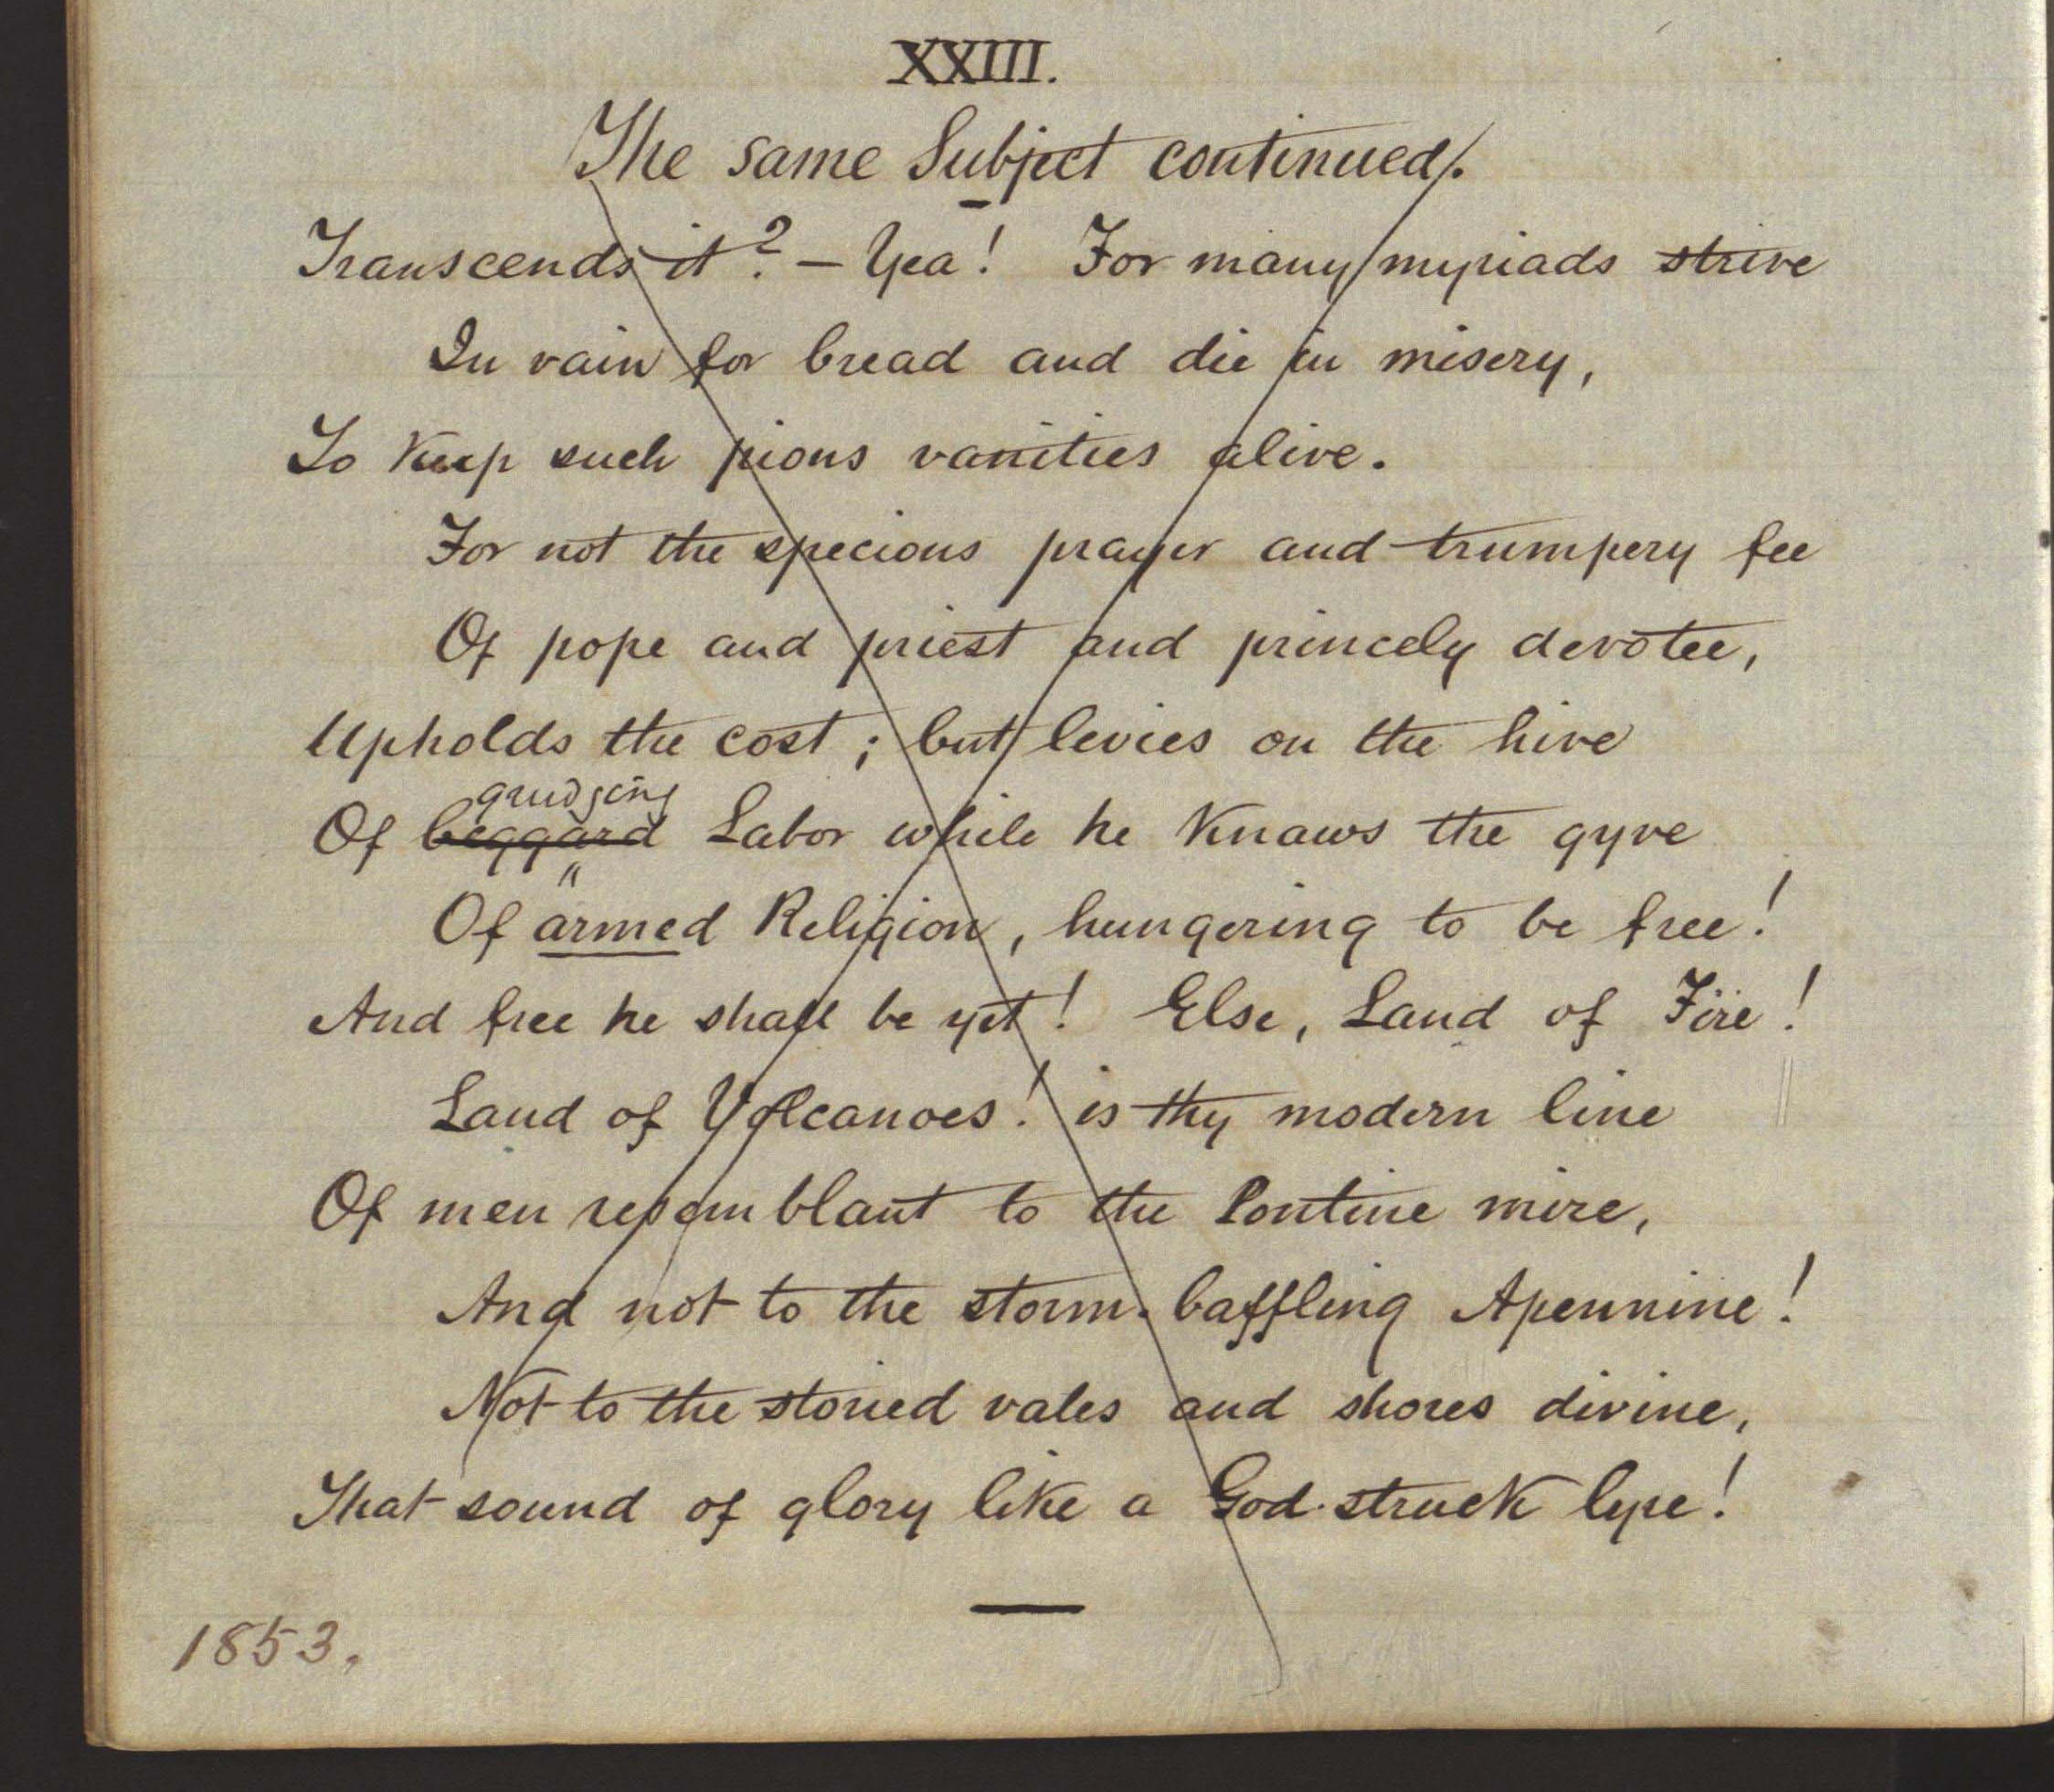 XXIII.
The same Subject continued.
Transcends it? — Yea! For many myriads strive
In vain for bread and die in misery,
To Keep such pious vanities alive.
For not the specious prayer and trumpery fee
Of pope and priest and princely devotee,
Upholds the cost; but levies on the hive
grudging
Of beggard Labor while he Knaws the gyve
Of armed Religion, hungering to be free!
And free he shall be yet! Else, Land of Fire!
Land of Volcanoes! is thy modern line
Of men resemblant to the Pontine mire,
And not to the storm-baffling Apennine!
Not to the storied vales and shores divine,
That sound of glory like a God-struck lyre!
1853.